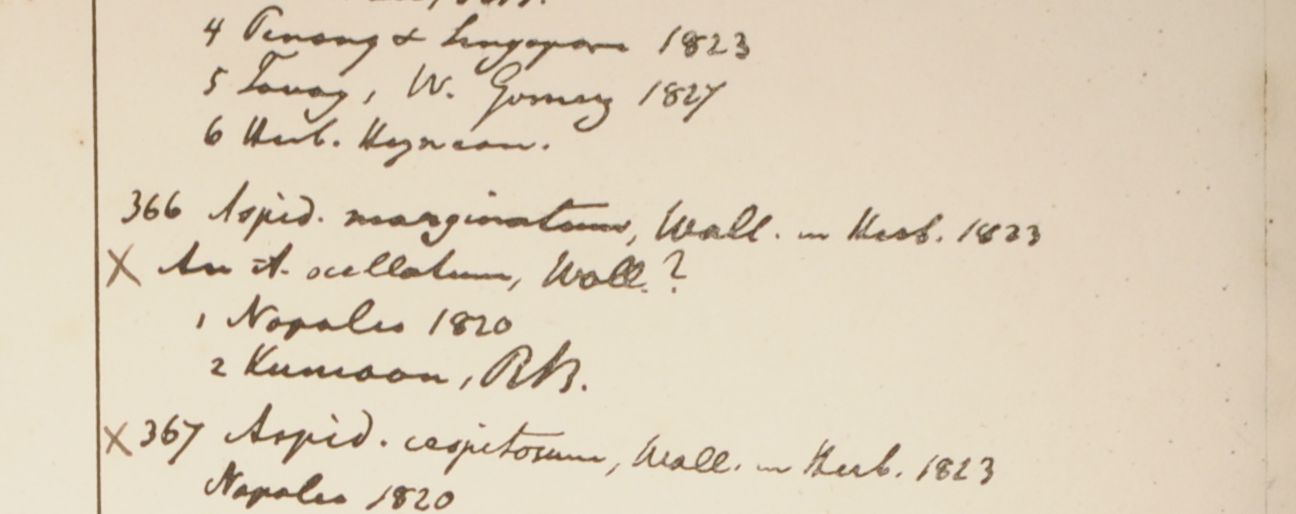 4 Penang & Singapore 1823
5 Tavoy, W. Gomez 1827
6 Herb. Heynean.
366 Aspid. marginatum, Wall. in Herb. 1823
X An A. ocellatum, Wall.?
1 Napalia 1820
2 Kumaon, R.B.
X 367 Aspid. cespitosum, Wall. in Herb. 1823
Napalia 1820